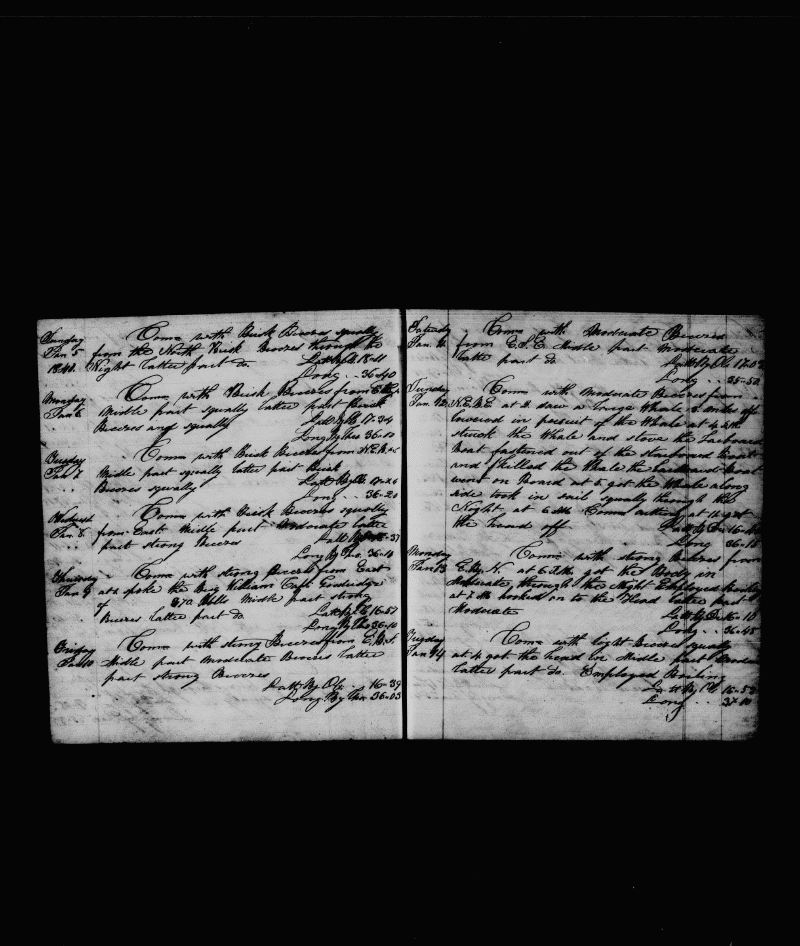 Sunday Coms with Brisk Breezes squally
Jan 5 from the North Brisk Breezes through the
1840. Night latter part do. Latt By Ob 18-11
Long .. 36-40
Monday Coms with Brisk Breezes from
Jan 6 Middle part squally latter part Brisk
.. Breezes and squally Latt By Ob 17-34
Long By Chro 36-10
Tuesday Coms with Brisk Breezes from N.E.
Jan 7 Middle part squally latter part Brisk
.. Breezes squally Latt By Ob 17-
Long .. 36-20
Coms with Brisk Breezes squally
Jan 8. from East Middle part Moderate latter
part strong Breezes Latt By
Long By Chro. 36-10
Thursday Coms with strong Breezes from East
Jan 9 at 2 spoke the Brig William Capt
of 370 Bbls Middle part strong
Breezes latter part do Latt By Ob 16-57
Long By Chro 36-10
Friday Coms with strong Breezes from
Jan 10 Middle part Moderate Breezes latter
part strong Breezes
Latt By Ob .. 16-39
Long By Chro 36-03
Saturday Coms with Moderate Breezes
Jan. 11 from E.S.E Middle part Moderate
latter part do Latt By Ob 17-0
Long .. 35-52
Coms with Moderate Breezes from
Jan 12 N.E. at 2 saw a large Whale 2 miles off
lowered in pursuit of the Whale at 4
struck the Whale and stove the Larboard
Boat fastened out of the Starboard Boat
and killed the Whale the Larboard Boat
went on Board at 5 got the Whale along
side took in sail squally through the
Night at 6 AM Coms cutting at 11 got
the head off Latt By 16-
Long 36-15
Monday Coms with strong Breezes from
Jan 13 E.by N. at 6 PM got the Body in
Moderate through the Night Employed
at 7 AM hooked on to the Head latter part
Moderate Latt By 16-10
Long .. 36-45
Tuesday Coms with light Breezes squally
Jan 14 at 4 got the head in Middle part
latter part do Employed Boiling
Latt By Ob 16-52
Long .. 37-10